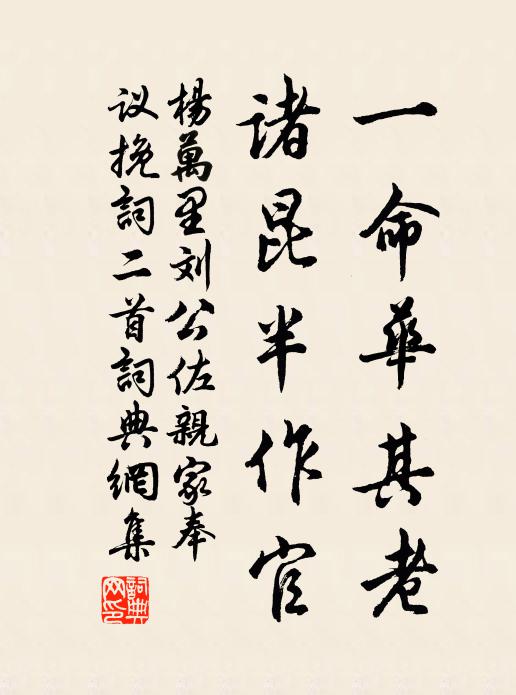 一命華其老
諸昆半作官
楊萬里刘公佐親家奉
议挽詞二首詞典網集
詞典网印